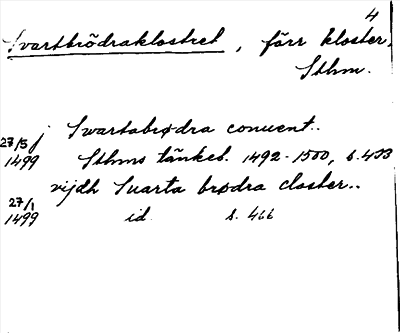 4
Svartbrödraklostret, förr kloster,
Sthm.
27/5 j Swartabrødra conuent..
1499 Sthms tänkeb. 1492-1500, s. 433
vijdh Suarta brødra closter..
27/1
1499 id. s. 466